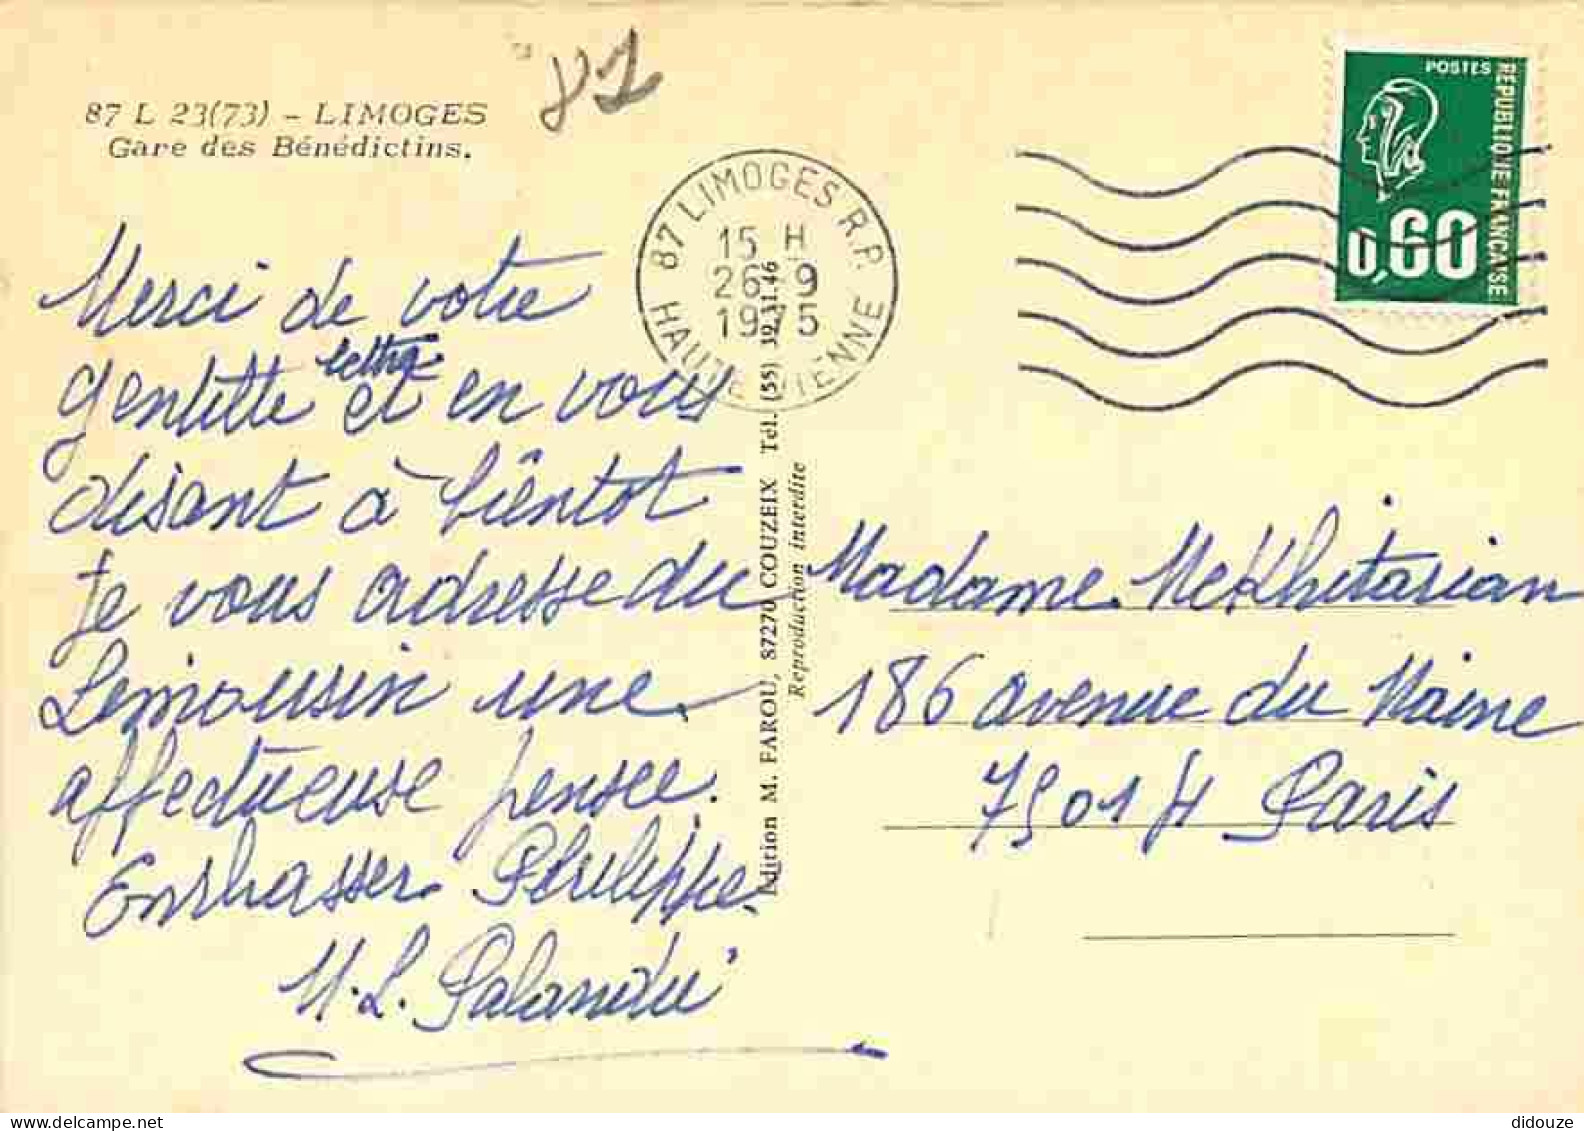 87 L 23(73) - LIMOGES
Gare des Bénédictins.
87
Merci de votre
gentille lettre et en vous
disant à bientôt
je vous adresse du
Limousin une
affectueuse pensée.
Embrasser Philippe.
M. L.
87 LIMOGES R.P.
15 H
26 9
1975
HAUTE VIENNE
Edition M. FAROU, 87270 COUZEIX Tél. (55) 39.31.46
Reproduction interdite
POSTES
REPUBLIQUE FRANÇAISE
0,60
Madame Mekhitarian
186 avenue du Maine
75014 Paris
didouze